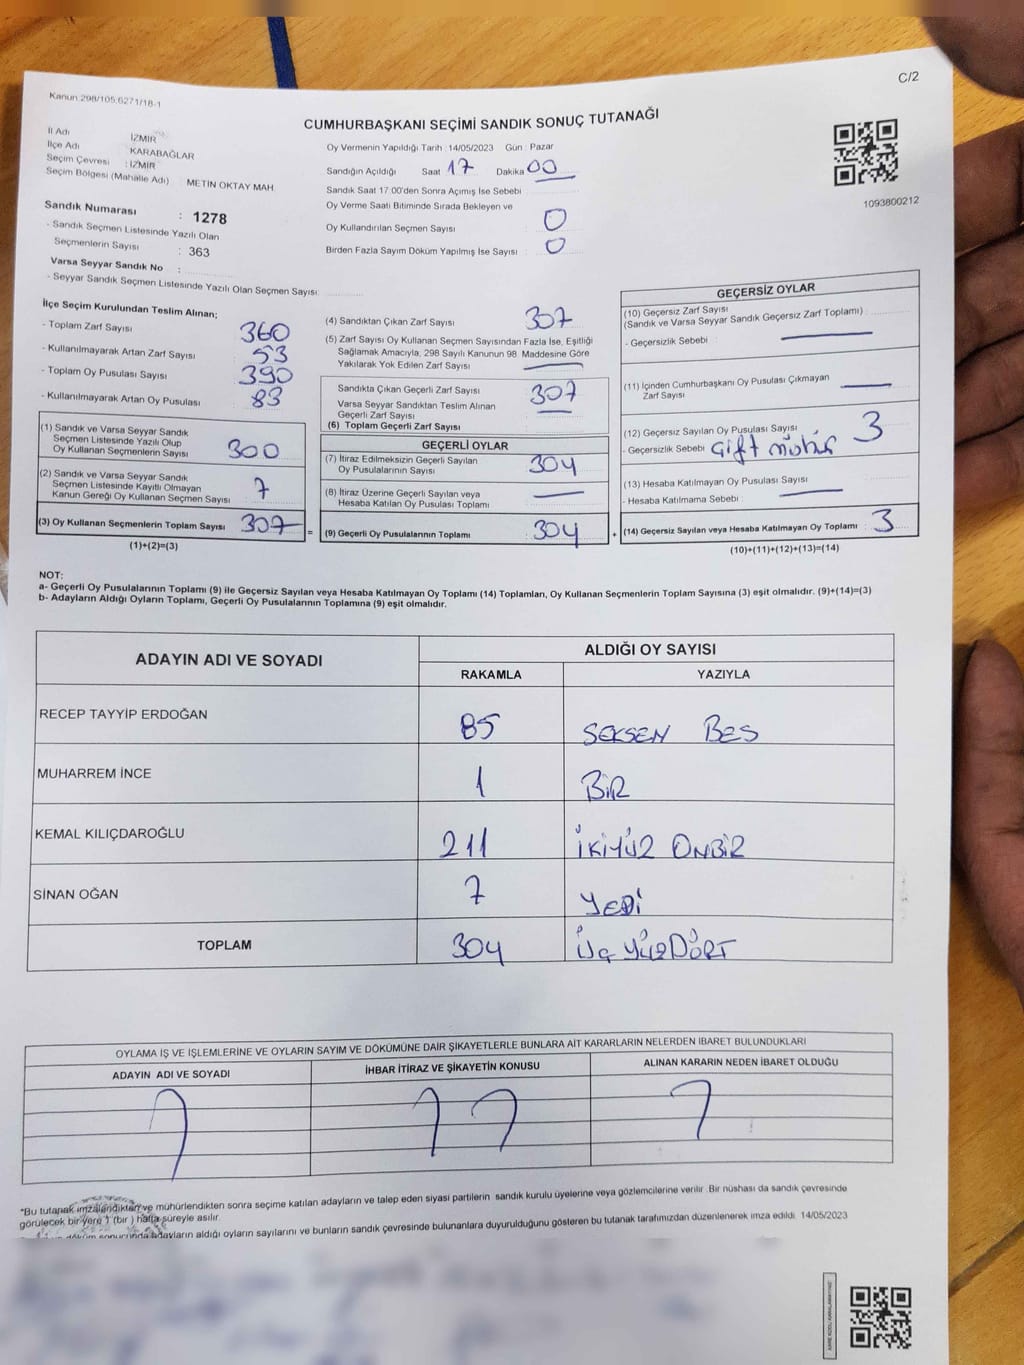 C/2
Kanun 298/105.6271/18-1
CUMHURBAŞKANI SEÇİMİ SANDIK SONUÇ TUTANAĞI
İl Adı İZMİR
İlçe Adı KARABAĞLAR
Seçim Çevresi : İZMİR
Seçim Bölgesi (Mahalle Adı) METİN OKTAY MAH.
Sandık Numarası : 1278
- Sandık Seçmen Listesinde Yazılı Olan
Seçmenlerin Sayısı : 363
Varsa Seyyar Sandık No :
- Seyyar Sandık Seçmen Listesinde Yazılı Olan Seçmen Sayısı:
Oy Vermenin Yapıldığı Tarih : 14/05/2023 Gün : Pazar
Sandığın Açıldığı Saat 17 Dakika 00
Sandık Saat 17:00'den Sonra Açımış İse Sebebi
Oy Verme Saati Bitiminde Sırada Bekleyen ve
Oy Kullandırılan Seçmen Sayısı : 0
Birden Fazla Sayım Döküm Yapılmış İse Sayısı : 0
1093800212
İlçe Seçim Kurulundan Teslim Alınan;
- Toplam Zarf Sayısı 360
- Kullanılmayarak Artan Zarf Sayısı 53
- Toplam Oy Pusulası Sayısı 390
- Kullanılmayarak Artan Oy Pusulası 83
(1) Sandık ve Varsa Seyyar Sandık
Seçmen Listesinde Yazılı Olup
Oy Kullanan Seçmenlerin Sayısı 300
(2) Sandık ve Varsa Seyyar Sandık
Seçmen Listesinde Kayıtlı Olmayan
Kanun Gereği Oy Kullanan Seçmen Sayısı 7
(3) Oy Kullanan Seçmenlerin Toplam Sayısı 307 =
(1)+(2)=(3)
(4) Sandıktan Çıkan Zarf Sayısı 307
(5) Zarf Sayısı Oy Kullanan Seçmen Sayısından Fazla İse, Eşitliği
Sağlamak Amacıyla, 298 Sayılı Kanunun 98. Maddesine Göre
Yakılarak Yok Edilen Zarf Sayısı
Sandıkta Çıkan Geçerli Zarf Sayısı 307
Varsa Seyyar Sandıktan Teslim Alınan
Geçerli Zarf Sayısı
(6) Toplam Geçerli Zarf Sayısı
GEÇERLİ OYLAR
(7) İtiraz Edilmeksizin Geçerli Sayılan
Oy Pusulalarının Sayısı 304
(8) İtiraz Üzerine Geçerli Sayılan veya
Hesaba Katılan Oy Pusulası Toplamı
(9) Geçerli Oy Pusulalarının Toplamı 304 +
GEÇERSİZ OYLAR
(10) Geçersiz Zarf Sayısı
(Sandık ve Varsa Seyyar Sandık Geçersiz Zarf Toplamı)
- Geçersizlik Sebebi :
(11) İçinden Cumhurbaşkanı Oy Pusulası Çıkmayan
Zarf Sayısı
(12) Geçersiz Sayılan Oy Pusulası Sayısı 3
- Geçersizlik Sebebi Çift mühür
(13) Hesaba Katılmayan Oy Pusulası Sayısı
- Hesaba Katılmama Sebebi :
(14) Geçersiz Sayılan veya Hesaba Katılmayan Oy Toplamı : 3
(10)+(11)+(12)+(13)=(14)
NOT:
a- Geçerli Oy Pusulalarının Toplamı (9) ile Geçersiz Sayılan veya Hesaba Katılmayan Oy Toplamı (14) Toplamları, Oy Kullanan Seçmenlerin Toplam Sayısına (3) eşit olmalıdır. (9)+(14)=(3)
b- Adayların Aldığı Oyların Toplamı, Geçerli Oy Pusulalarının Toplamına (9) eşit olmalıdır.
ADAYIN ADI VE SOYADI ALDIĞI OY SAYISI
RAKAMLA YAZIYLA
RECEP TAYYİP ERDOĞAN 85 SEKSEN BES
MUHARREM İNCE 1 BİR
KEMAL KILIÇDAROĞLU 211 İKİYÜZ ONBİR
SİNAN OĞAN 7 YEDİ
TOPLAM 304 ÜÇ YÜZ DÖRT
OYLAMA İŞ VE İŞLEMLERİNE VE OYLARIN SAYIM VE DÖKÜMÜNE DAİR ŞİKAYETLERLE BUNLARA AİT KARARLARIN NELERDEN İBARET BULUNDUKLARI
ADAYIN ADI VE SOYADI İHBAR İTİRAZ VE ŞİKAYETİN KONUSU ALINAN KARARIN NEDEN İBARET OLDUĞU
*Bu tutanak imzalandıktan ve mühürlendikten sonra seçime katılan adayların ve talep eden siyasi partilerin sandık kurulu üyelerine veya gözlemcilerine verilir. Bir nüshası da sandık çevresinde
görülecek bir yere 1 (bir) hafta süreyle asılır.
döküm sonucunda adayların aldığı oyların sayılarını ve bunların sandık çevresinde bulunanlara duyurulduğunu gösteren bu tutanak tarafımızdan düzenlenerek imza edildi. 14/05/2023